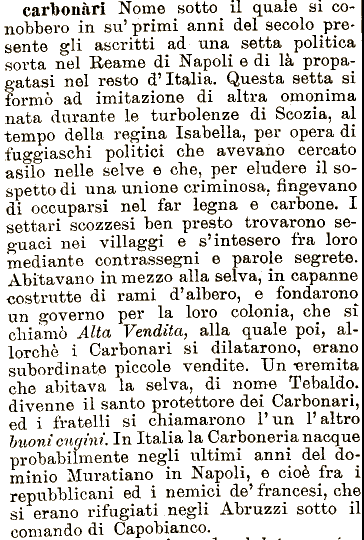 carbonàri Nome sotto il quale si co-
nobbero in su' primi anni del secolo pre-
sente gli ascritti ad una setta politica
sorta nel Reame di Napoli e di là propa-
gatasi nel resto d'Italia. Questa setta si
formò ad imitazione di altra omonima
nata durante le turbolenze di Scozia, al
tempo della regina Isabella, per opera di
fuggiaschi politici che avevano cercato
asilo nelle selve e che, per eludere il so-
spetto di una unione criminosa, fingevano
di occuparsi nel far legna e carbone. I
settari scozzesi ben presto trovarono se-
guaci nei villaggi e s'intesero fra loro
mediante contrassegni e parole segrete.
Abitavano in mezzo alla selva, in capanne
costrutte di rami d'albero, e fondarono
un governo per la loro colonia, che si
chiamò Alta Vendita, alla quale poi, al-
lorchè i Carbonari si dilatarono, erano
subordinate piccole vendite. Un eremita
che abitava la selva, di nome Tebaldo.
divenne il santo protettore dei Carbonari,
ed i fratelli si chiamarono l'un l'altro
buoni cugini. In Italia la Carboneria nacque
probabilmente negli ultimi anni del do-
minio Muratiano in Napoli, e cioè fra i
repubblicani ed i nemici de' francesi, che
si erano rifugiati negli Abruzzi sotto il
comando di Capobianco.